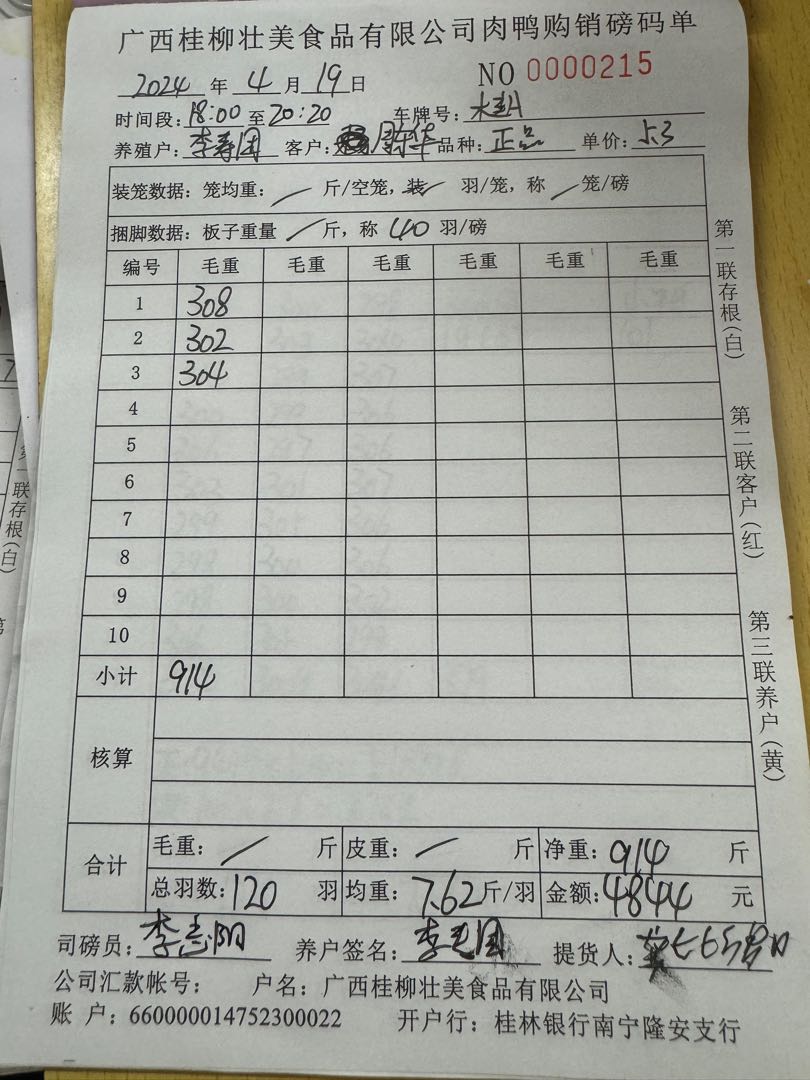 广西桂柳壮美食品有限公司肉鸭购销磅码单
2024 年 4 月 19 日 NO 0000215
时间段: 18:00 至 20:20 车牌号:
养殖户: 李寿团 客户: 品种: 正品 单价: 5.3
装笼数据: 笼均重: / 斤/空笼, 装 羽/笼, 称 / 笼/磅
捆脚数据: 板子重量 / 斤, 称 40 羽/磅
编号 毛重 毛重 毛重 毛重 毛重 毛重
1 308
2 302
3 304
4
5
6
7
8
9
10
小计 914
核算
合计 毛重: / 斤 皮重: / 斤 净重: 914 斤
总羽数: 120 羽 均重: 7.62 斤/羽 金额: 4844 元
司磅员: 李志阳 养户签名: 提货人:
公司汇款帐号: 户名: 广西桂柳壮美食品有限公司
账 户: 660000014752300022 开户行: 桂林银行南宁隆安支行
第一联存根(白)
第二联客户(红)
第三联养户(黄)
联存根(白)